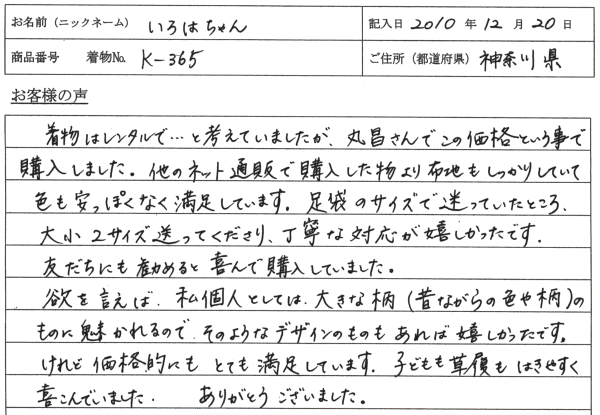 お名前（ニックネーム） いろはちゃん 記入日 2010 年 12 月 20 日
商品番号 着物No. K-365 ご住所（都道府県） 神奈川県
お客様の声
着物はレンタルで…と考えていましたが、丸昌さんでこの価格という事で
購入しました。他のネット通販で購入した物より布地もしっかりしていて
色も安っぽくなく満足しています。足袋のサイズで迷っていたところ、
大小2サイズ送ってくださり、丁寧な対応が嬉しかったです。
友だちにも勧めると喜んで購入していました。
欲を言えば、私個人としては、大きな柄（昔ながらの色や柄）の
ものに魅かれるので、そのようなデザインのものもあれば嬉しかったです。
けれど価格的にもとても満足しています。子どもも草履もはきやすく
喜こんでいました。 ありがとうございました。